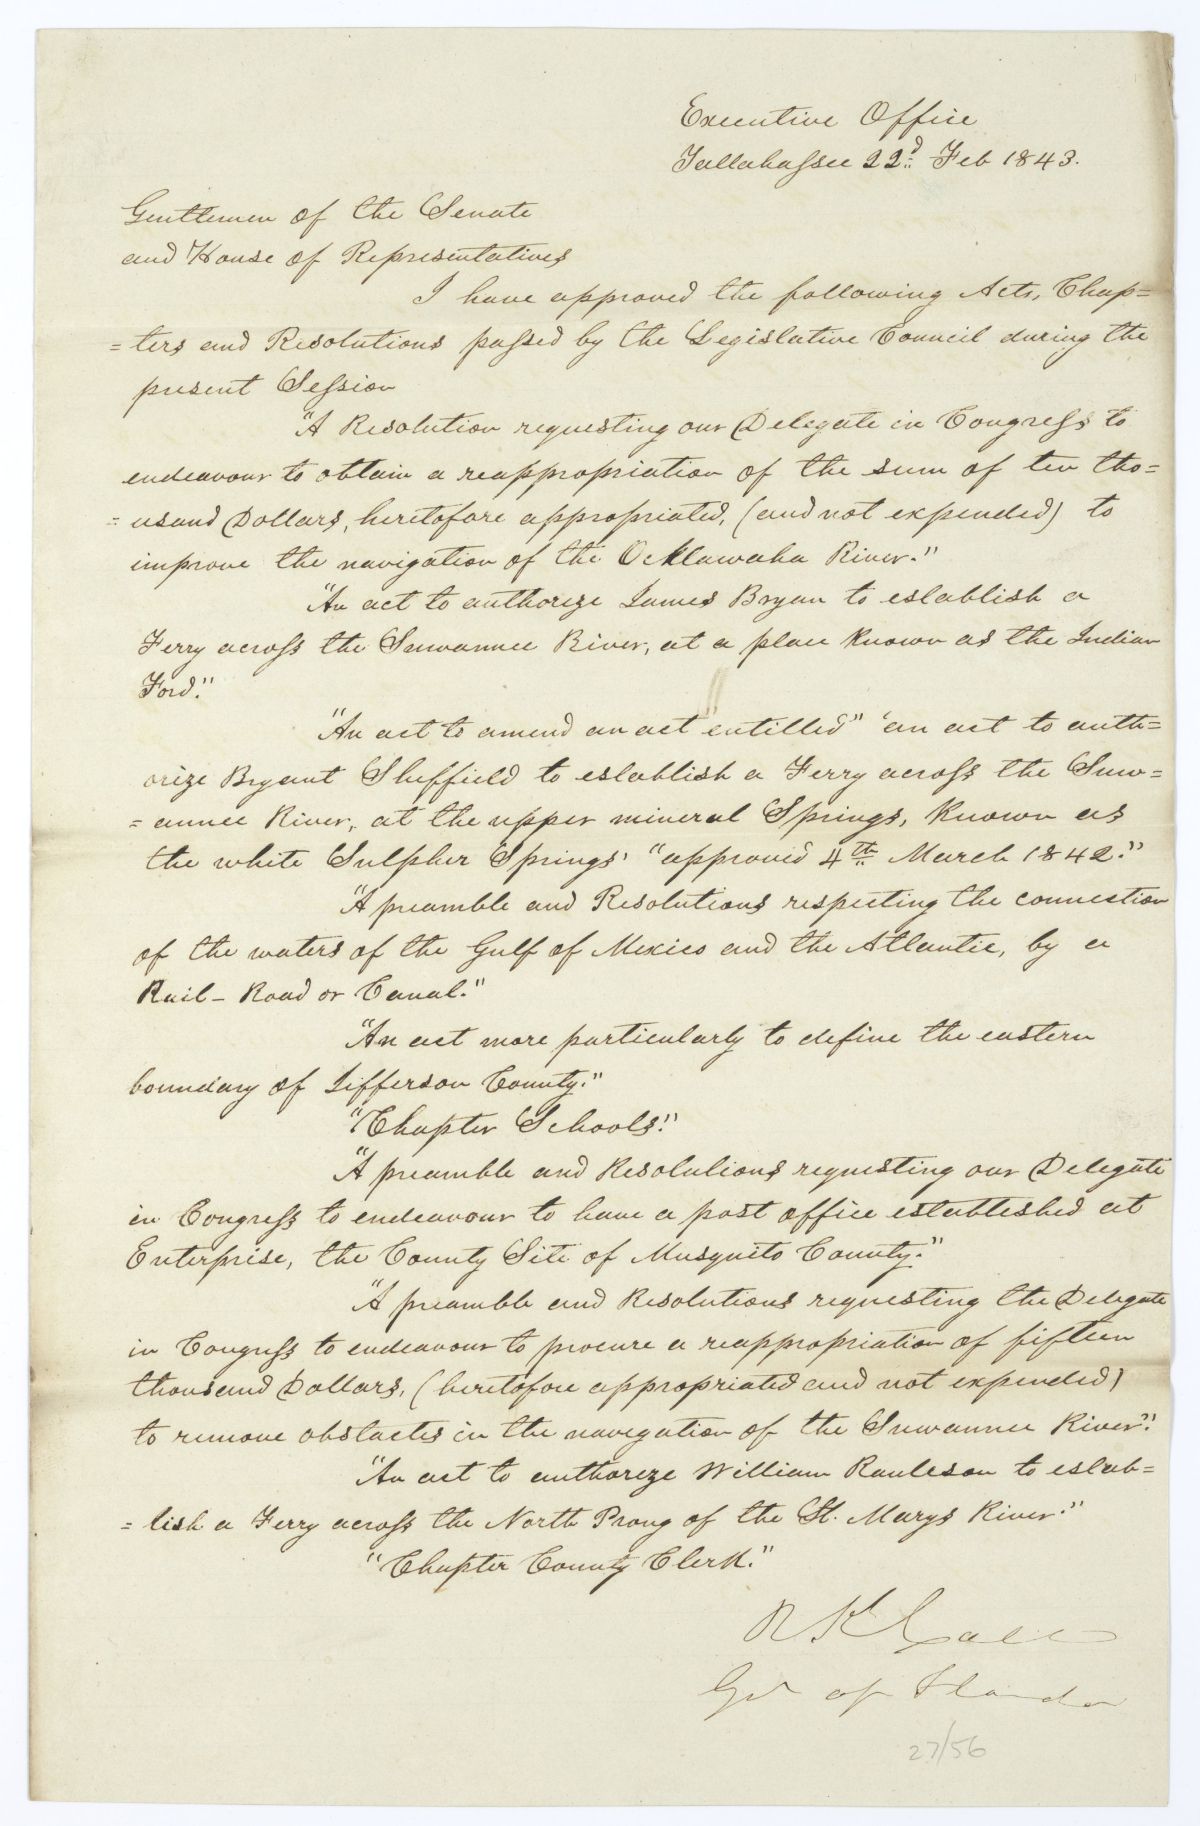 Executive Office
Tallahassee 22d Feb 1843.
Gentlemen of the Senate
and House of Representatives
I have approved the following Acts, Chap=
=ters and Resolutions passed by the Legislative Council during the
present Session
"A Resolution requesting our Delegate in Congress to
endeavour to obtain a reappropriation of the sum of ten tho=
=usand Dollars, heretofore appropriated, (and not expended) to
improve the navigation of the Ocklawaha River."
"An act to authorize James Bryan to establish a
Ferry across the Suwannee River, at a place known as the Indian
Ford."
"An act to amend an act entitled" 'an act to auth=
orize Bryant Sheffield to establish a Ferry across the Suw=
=annee River, at the upper mineral Springs, known as
the white Sulpher Springs' "approved 4th March 1842."
"A preamble and Resolutions respecting the connection
of the waters of the Gulf of Mexico and the Atlantic, by a
Rail-Road or Canal."
"An act more particularly to define the eastern
boundary of Jefferson County."
"Chapter Schools."
"A preamble and Resolutions requesting our Delegate
in Congress to endeavour to have a post office established at
Enterprise, the County Site of Musquito County."
"A preamble and Resolutions requesting the Delegate
in Congress to endeavour to procure a reappropriation of fifteen
thousand Dollars, (heretofore appropriated and not expended)
to remove obstacles in the navigation of the Suwannee River."
"An act to authorize William Rauleson to estab=
=lish a Ferry across the North Prong of the St. Marys River."
"Chapter County Clerk."
R K Call
Gov of Florida
27/56